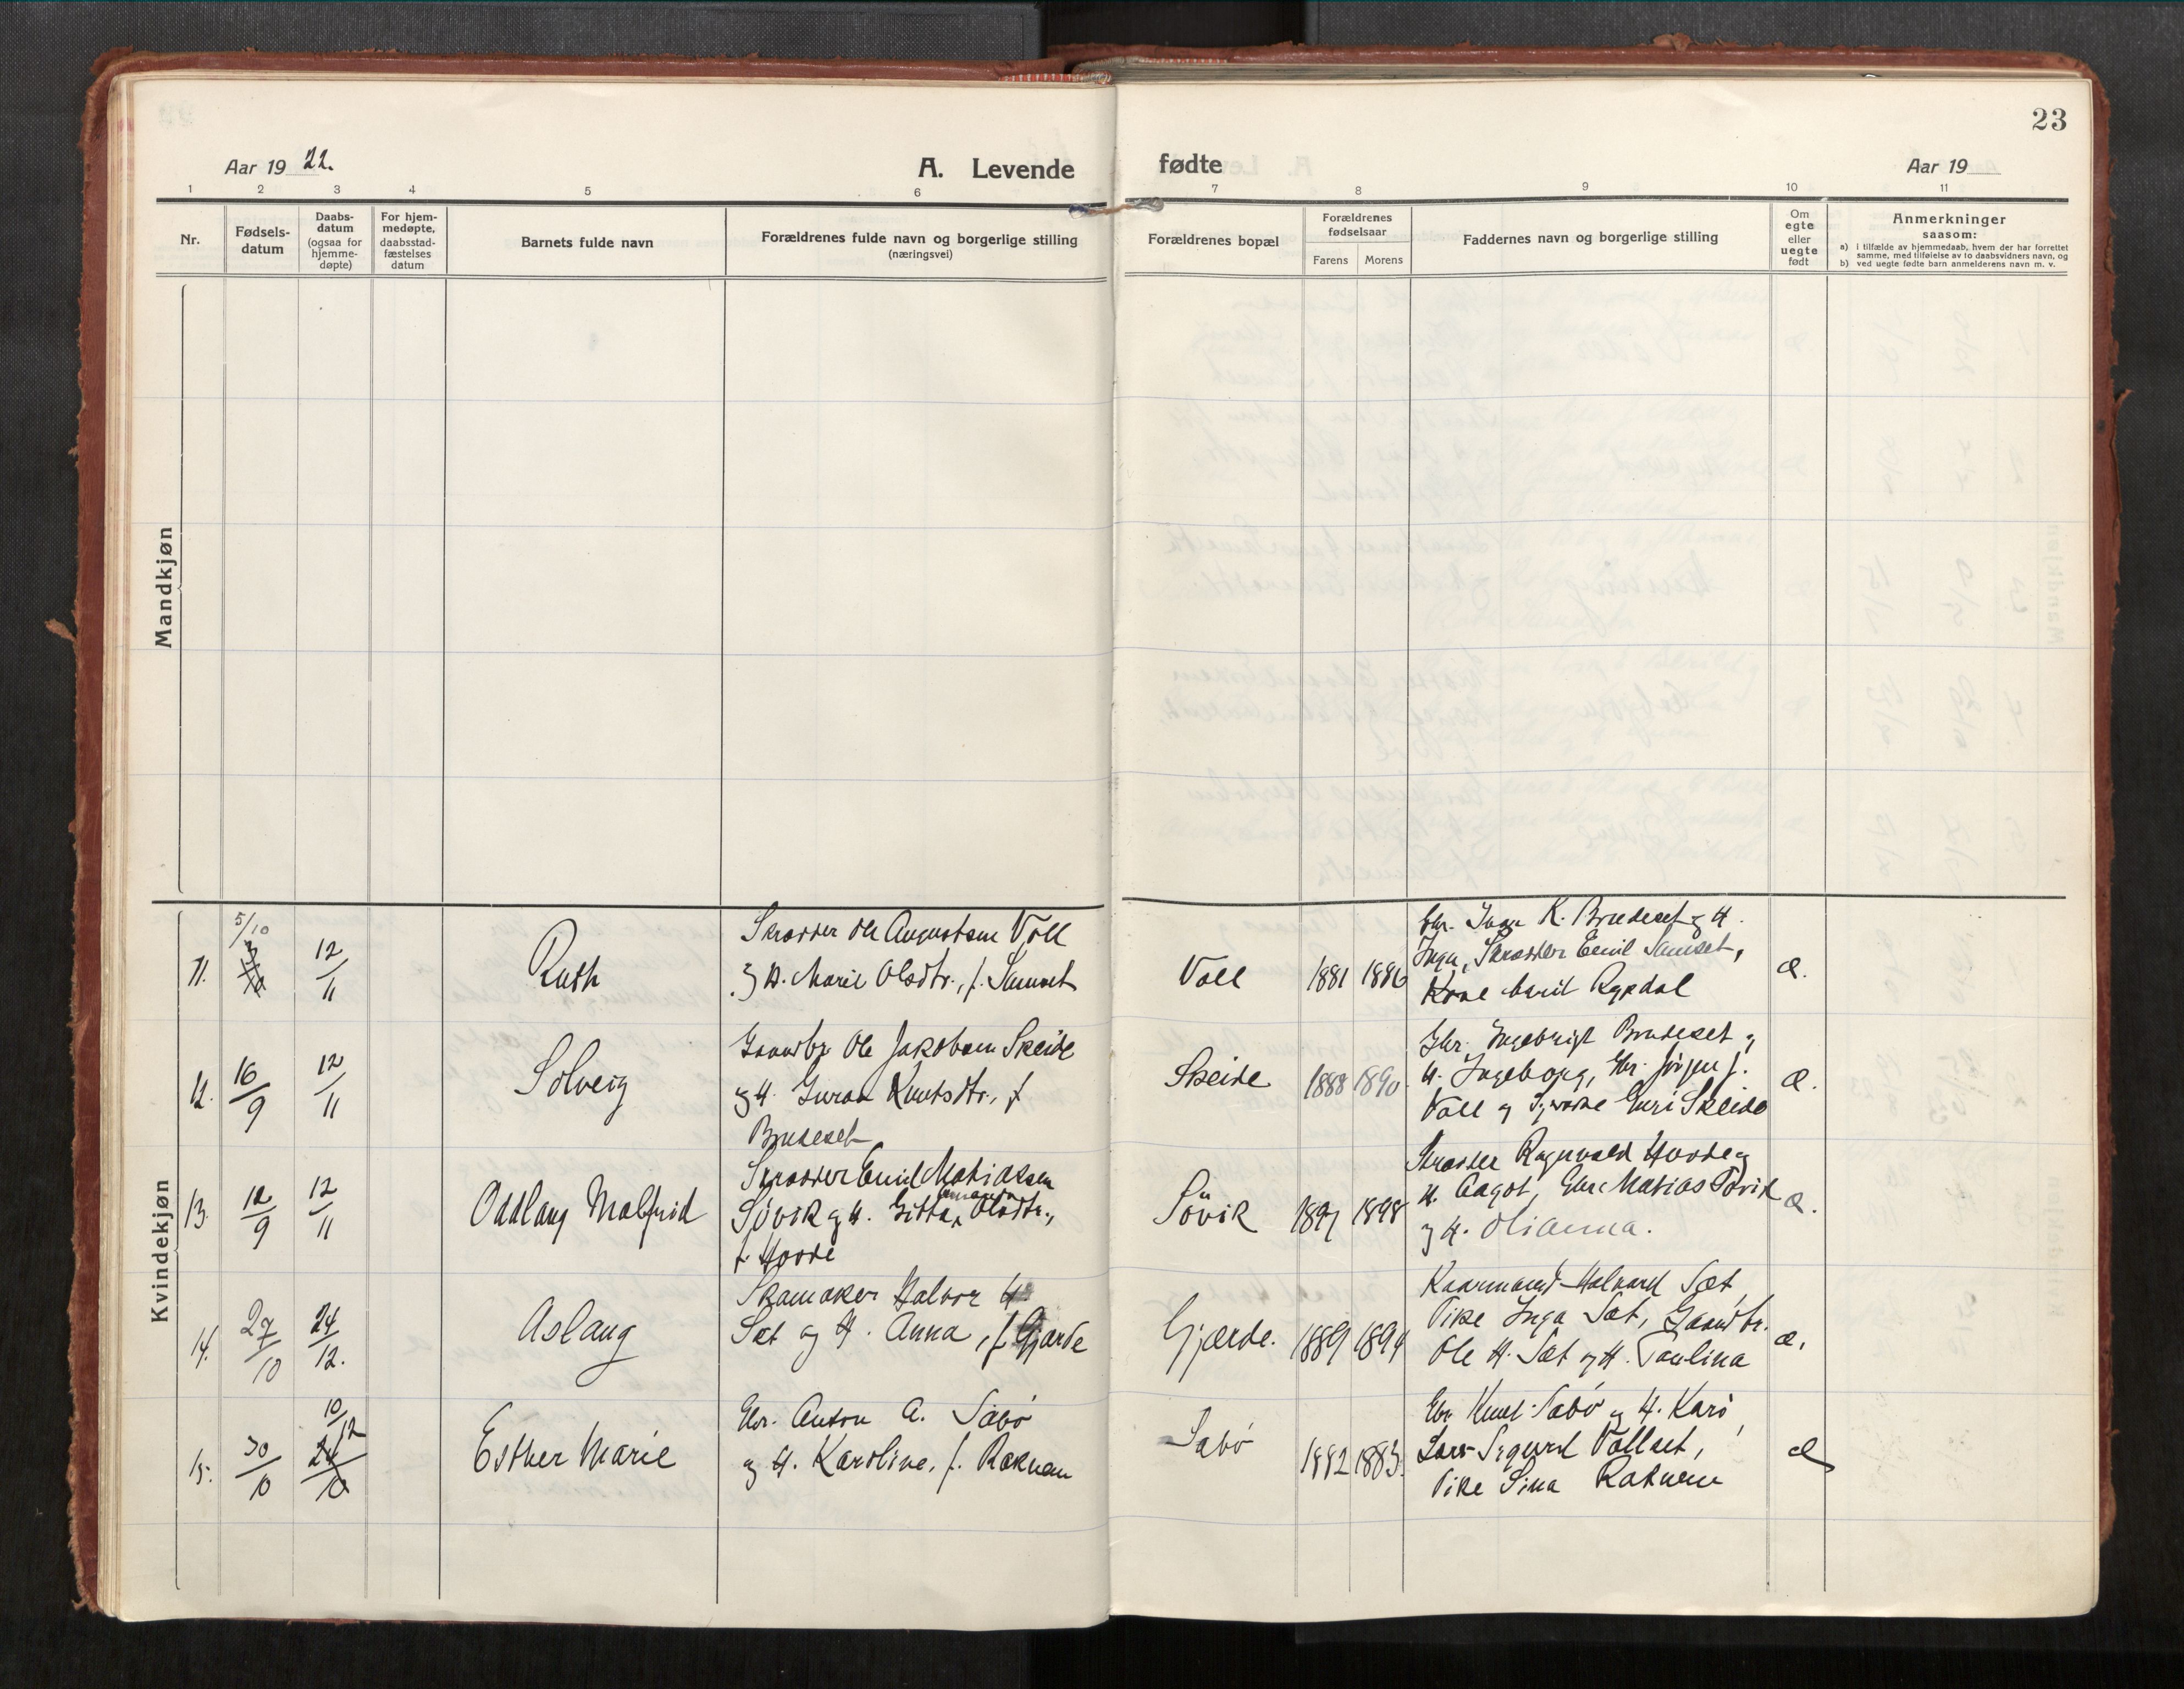 23
Aar 19 22.
A. Levende
fødte
Aar 19
1 2 3 4 5 6 7 8 9 10 11
Nr.
Fødsels-
datum
Daabs-
datum
(ogsaa for
hjemme-
døpte)
For hjem-
medøpte,
daabsstad-
fæstelses
datum
Barnets fulde navn
Forældrenes fulde navn og borgerlige stilling
(næringsvei)
Forældrenes bopæl
Forældrenes
fødselsaar
Farens
Morens
Faddernes navn og borgerlige stilling
Om
egte
eller
uegte
født
Anmerkninger
saasom:
a) i tilfælde av hjemmedaab, hvem der har forrettet
samme, med tilføielse av to daabsvidners navn, og
b) ved uegte fødte barn anmelderens navn m. v.
Mandkjøn
Kvindekjøn
11.
5/10
12/11
Ruth
Skrædder Ole Augustsen Voll
og H. Marie Olsdtr., f. Samset
Voll
1881
1886
Gbr. Ivar K. Brudeset og H.
Inga, Skrædder Emil Samset,
Kone Marit Rypdal
æ.
12.
16/9
12/11
Solveig
Gaardbr. Ole Jakobsen Skeide
og H. Guroa Knutsdtr., f
Brudeset
Skeide
1888
1890.
Gbr. Ingebrigt Brudeset og
H. Ingeborg, Gbr. Jørgen J.
Voll og Guri Skeide
æ.
13.
12/9
12/11
Oddlaug Malfrid
Skrædder Emil Matiassen
Søvik og H. Gitta Olsdtr.,
f. Hovde
Søvik
1897
1898
Skrædder Ragnvald Hovde og
H. Aagot, Gbr. Matias Søvik
og H. Olianna.
æ.
14.
27/10
24/12.
Aslaug
Skomaker Halvor H
Sæt og H. Anna, f. Gjærde
Gjærde.
1889
1894
Kaarmand Halvard Sæt,
Pike Inga Sæt, Gaardbr.
Ole H. Sæt og H. Paulina
æ.
15.
30/10
10/12
24/10
Esther Marie
Gbr. Anton A. Sæbø
og H. Karoline, f. Raknem
Sæbø
1882
1883.
Gbr. Knut Sæbø og H. Kari,
Lars Sigurd Vollset,
Pike Sina Raknem
æ